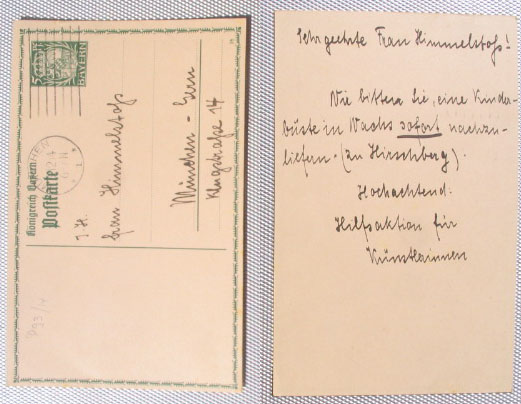 BAYERN
Königreich Bayern
Postkarte
I. H.
Frau Himmelstoß
München - Gern
Klugstraße 14
Sehr geehrte Frau Himmelstoß!
Wir bitten Sie, eine Kinder-
büste in Wachs sofort nachzu-
liefern. (zu Hirschberg).
Hochachtend:
Hilfsaktion für
Künstlerinnen